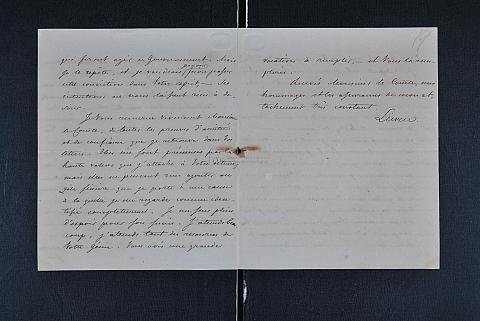 que feront agir ce Gouvernement. Mais
je le répète, et je voudrais pouvoir faire passer
cette conviction dans votre esprit, ses
intentions ne nous laissent rien à dé-
sirer.
Je vous remercie vivement Monsieur
le Comte, de toutes les preuves d'amitié
et de confiance que je retrouve dans vos
lettres. Elles me sont précieuses par la
haute valeur que j'attache à votre estime,
mais elles ne peuvent rien ajouter au
zèle sincère que je porte à une cause
à la quelle je me regarde comme iden-
tifié complètement. Je me sens plein
d'espoir pour son succès. J'attends beau-
coup, j'attends tant des ressources de
votre génie. Vous avez une grande
vocation à remplir, et vous la rem-
plirez.
Recevez Monsieur le Comte, mes
hommages et les assurances de mon at-
tachement très constant.